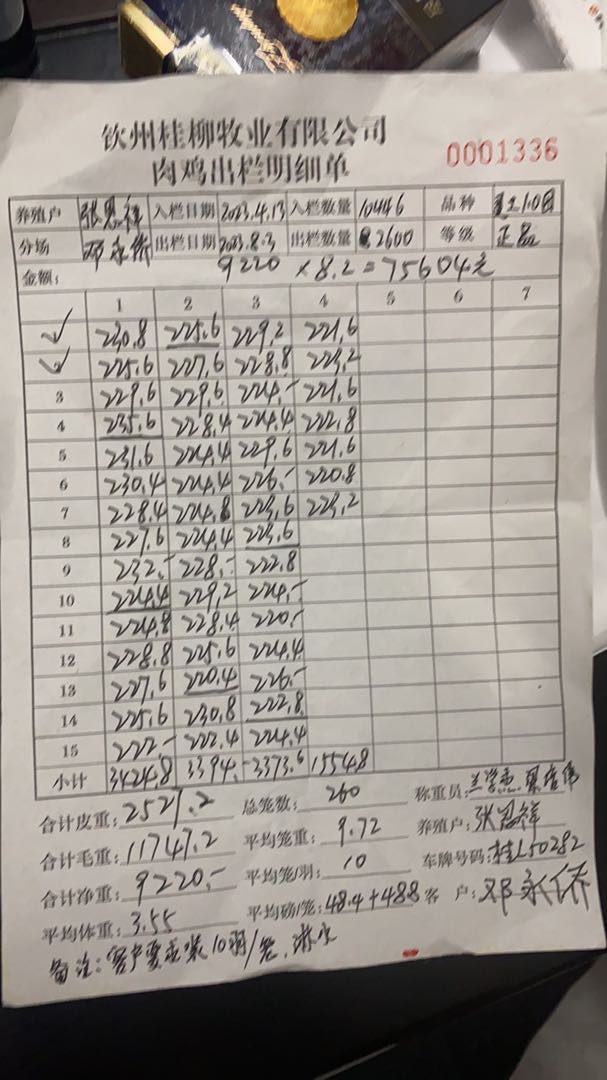 钦州桂柳牧业有限公司
肉鸡出栏明细单
0001336
养殖户 张恩祥 入栏日期 2023.4.13 入栏数量 10446 品种
分场 邓永侨 出栏日期 2023.8.3 出栏数量 2600 等级 正品
金额: 9220 × 8.2 = 75604元
1 2 3 4 5 6 7
230.8 225.6 229.2 221.6
225.6 227.6 228.8 223.2
3 229.6 229.6 224.- 221.6
4 235.6 228.4 224.4 222.8
5 231.6 224.4 229.6 221.6
6 230.4 224.4 226.- 220.8
7 228.4 224.8 223.6 223.2
8 227.6 224.4 223.6
9 232.- 228.- 222.8
10 224.4 229.2 224.-
11 224.8 228.4 220.-
12 228.8 225.6 224.4
13 227.6 220.4 226.-
14 225.6 230.8 222.8
15 222.- 222.4 224.4
小计 3424.8 3394.- 3373.6 1554.8
合计皮重: 2527.2 总笼数: 260 称重员:
合计毛重: 11747.2 平均笼重: 9.72 养殖户: 张恩祥
合计净重: 9220.- 平均笼/羽: 10 车牌号码: 桂L50282
平均体重: 3.55 平均磅/笼: 48.4+488 客户: 邓永侨
备注: 客户要求装10羽/笼, 淋水